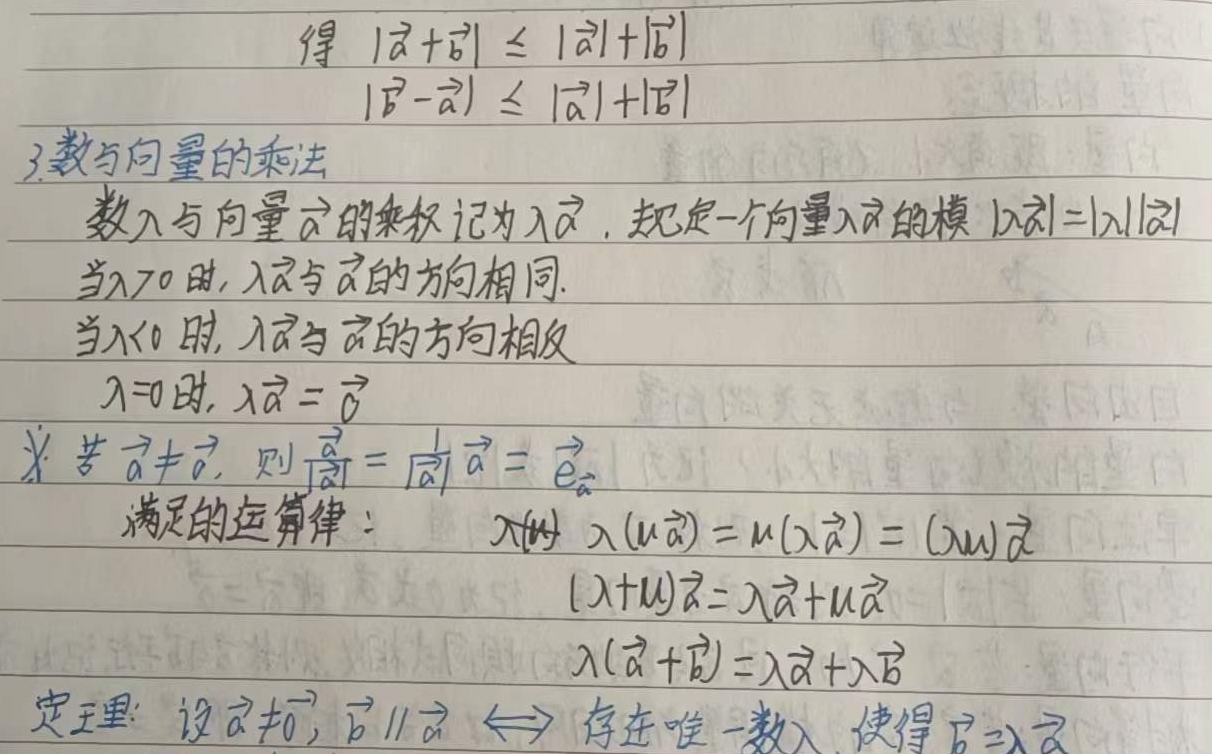 得 |a⃗+b⃗| ≤ |a⃗|+|b⃗|
|b⃗-a⃗| ≤ |a⃗|+|b⃗|
3.数与向量的乘法
数λ与向量a⃗的乘积记为λa⃗，规定一个向量λa⃗的模|λa⃗|=|λ||a⃗|
当λ>0时，λa⃗与a⃗的方向相同.
当λ<0时，λa⃗与a⃗的方向相反
λ=0时，λa⃗=0⃗
※ 若a⃗≠0⃗，则a⃗/|a⃗| = 1/|a⃗| a⃗ = e⃗_a⃗
满足的运算律： λ(μa⃗)=μ(λa⃗)=(λμ)a⃗
(λ+μ)a⃗=λa⃗+μa⃗
λ(a⃗+b⃗)=λa⃗+λb⃗
定理：设a⃗≠0⃗，b⃗∥a⃗ ⟺ 存在唯一数λ，使得b⃗=λa⃗